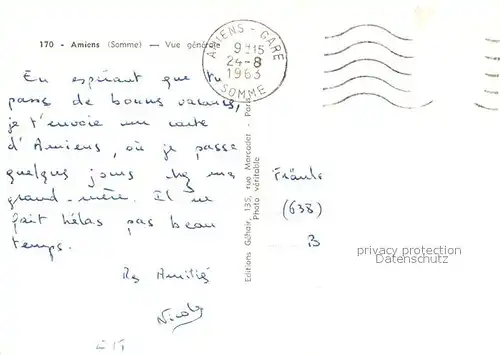 170 - Amiens (Somme) — Vue générale
AMIENS - GARE
9H15
24-8
1963
SOMME
En espérant que tu
pass de bonnes vacances,
je t'envoie une carte
d'Amiens, où je passe
quelques jours chez ma
grand-mère. Il ne
fait hélas pas beau
temps.
Mes Amitiés
Nicole
Editions Géhair, 135, rue Marcadet - Paris
Photo véritable
Fräulein
(638)
B
privacy protection
Datenschutz